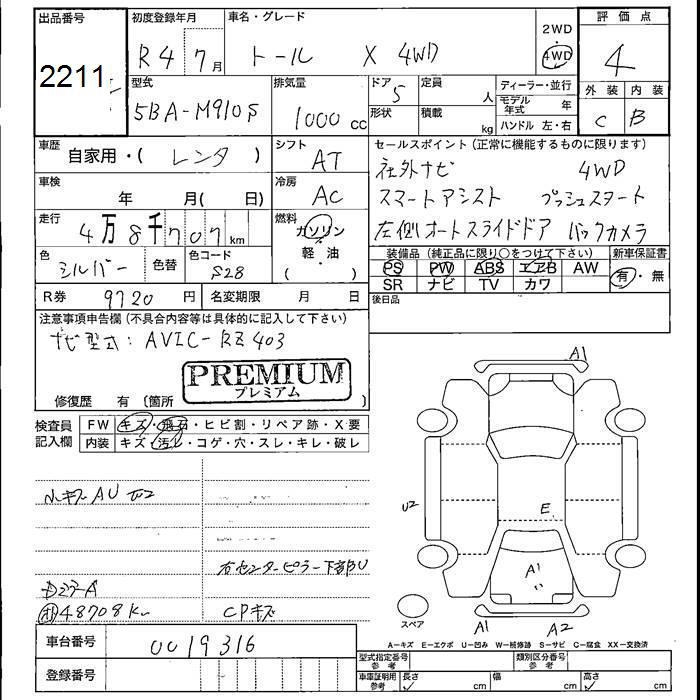 出品番号 初度登録年月 車名・グレード 2WD 評価点
2211 R4 7月 トール X 4WD 4WD 4
型式 排気量 ドア 定員 ディーラー・並行 外装 内装
5BA-M910S 1000 cc 5 人 モデル年式 年 C B
形状 積載 kg ハンドル 左・右
車歴 自家用・( レンタ ) シフト AT セールスポイント (正常に機能するものに限ります)
社外ナビ 4WD
車検 年 月( 日) 冷房 AC スマートアシスト プッシュスタート
走行 4万8千707km 燃料 ガソリン・軽油・( ) 左側オートスライドドア バックカメラ
色 シルバー 色替 色コード S28 装備品 (純正品に限り○をつけて下さい) 新車保証書
PS PW ABS エアB AW 有・無
SR ナビ TV カワ
R券 9720円 名変期限 月 日 後日品
注意事項申告欄 (不具合内容等は具体的に記入して下さい)
ナビ型式:AVIC-RZ403
PREMIUM
プレミアム
修復歴 有 (箇所 )
検査員記入欄 FW キズ・飛石・ヒビ割・リペア跡・X要
内装 キズ・汚レ・コゲ・穴・スレ・キレ・破レ
小キズAU
右センターピラー下部U
48708Km CPキズ
A1
U2
E
A1
A1 A2
スペア
A-キズ E-エクボ U-凹み W-補修跡 S-サビ C-腐食 XX-交換済
車台番号 0019316
型式指定番号 参考 類別区分番号 参考
登録番号 車庫証明用 参考 長さ cm 幅 cm 高さ cm